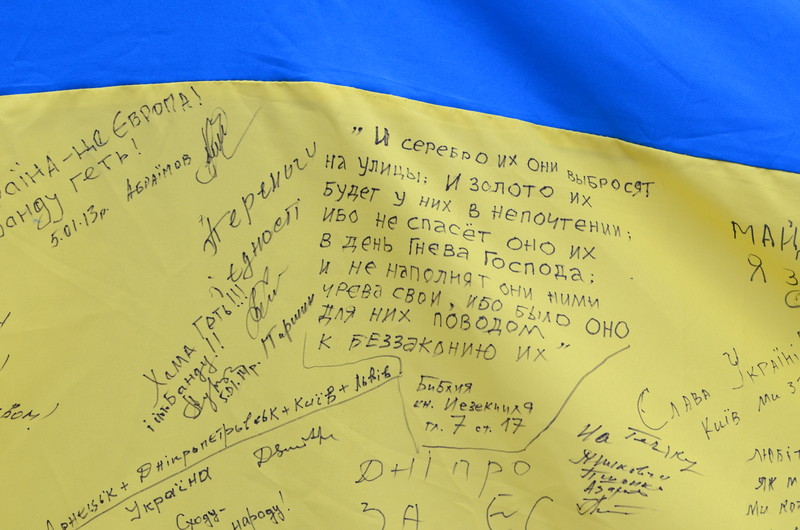 аїна - це Європа!
анду геть!
5.01.13г. Абраїмов
Перемоги
і єдності
Хама Геть!!!
і їїх Банду!!
5.01.14г.
" И серебро их они выбросят
на улицы; И золото их
будет у них в непочтении;
ибо не спасёт оно их
в день Гнева Господа;
и не наполнят они ними
чрева свои, ибо было оно
для них поводом
к беззаконию их "
Библия
кн. Иезекииля
гл. 7 ст. 17
Донецьк + Дніпропетровськ + Київ + Львів
Україна
Сходу-
народу!
Дніпро
за ЄС
На Гекіку
Янукович
Пшонка
Азаров
МАЙД
Я З
Слава Україні
Київ ми з
ЛЮБІТ
ЯК М
МИ